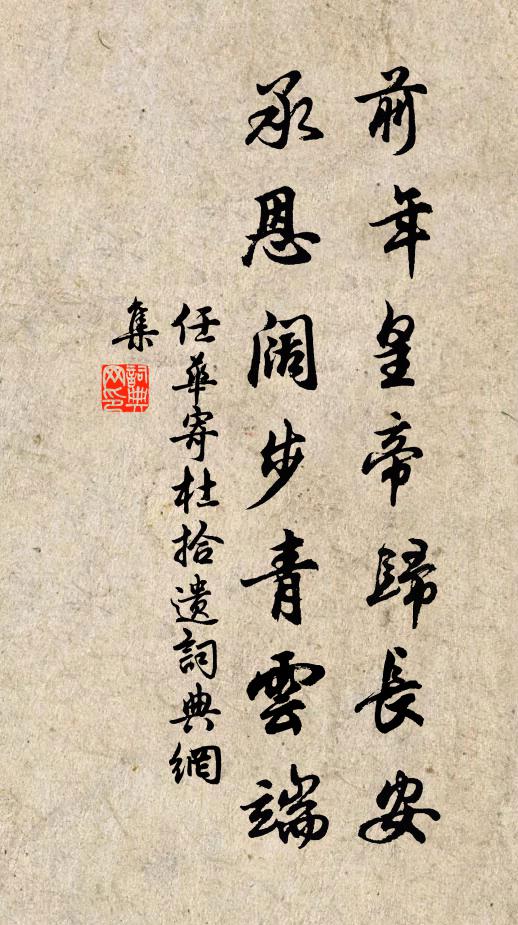 前年皇帝歸長安
承恩闊步青雲端
任華寄杜拾遺詞典網
集
詞典
网印